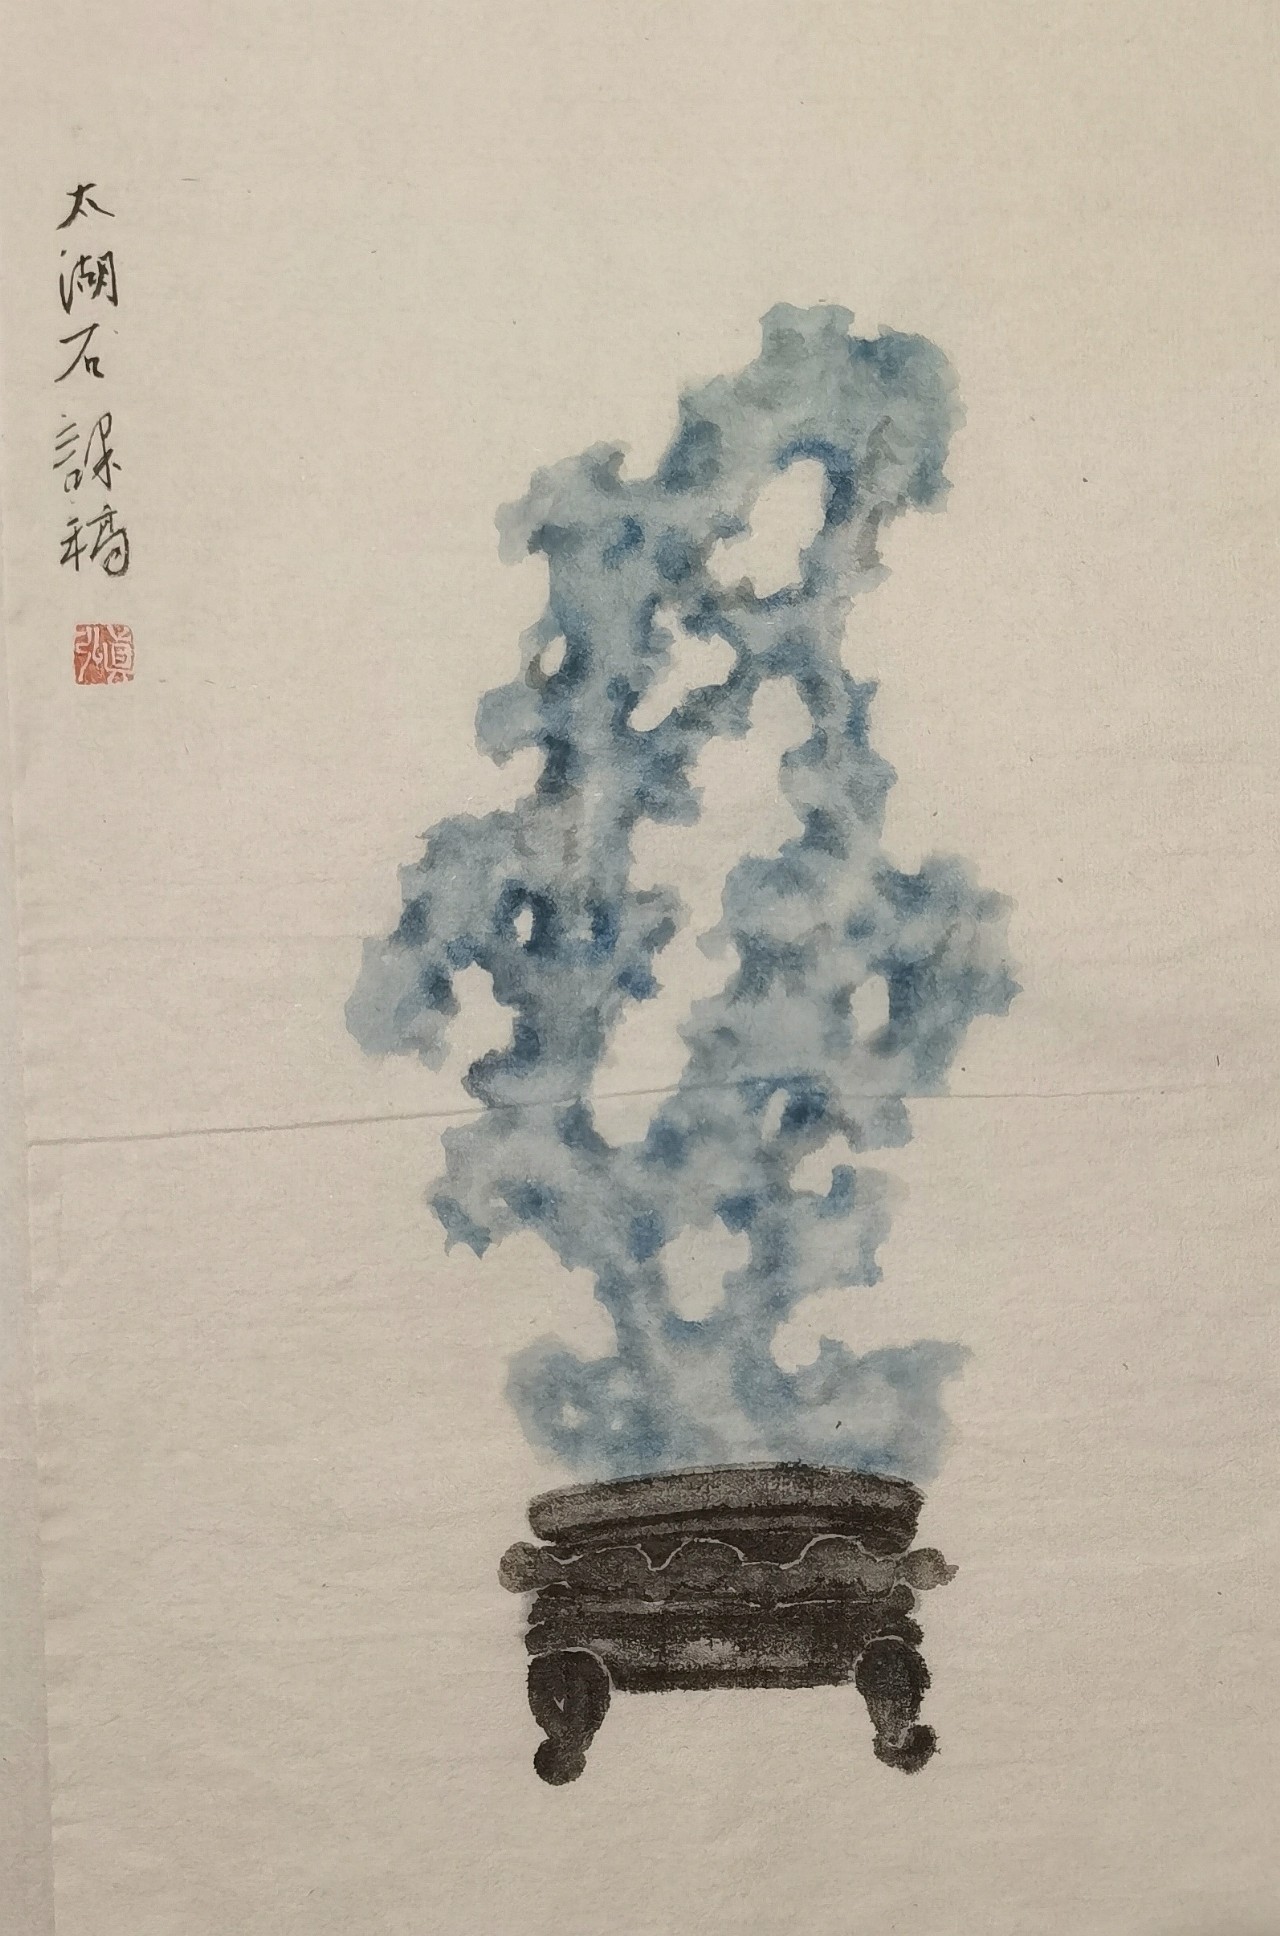 太湖石課稿